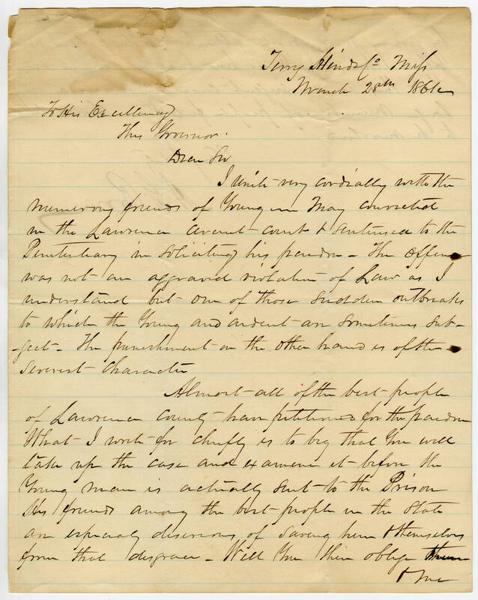 Terry Hinds Co Miss
March 28th 186
To His Excellency
The Governor.
Dear Sir
I unite very cordially with the
numerous friends of Young May convicted
in the Lawrence circuit court & sentenced to the
Penitentiary in soliciting his pardon - The Offence
was not an aggravd violation of Law as I
understand but one of those sudden outbreaks
to which the Young and ardent are sometimes sub-
ject - The punishment on the other hand is of the
severest character
Almost all of the best people
of Lawrence County have petitioned for the pardon
What I write for chiefly is to beg that You will
take up the case and examine it before the
Young man is actually sent to the Prison
His friends among the best people in the State
are especialy desireous of saving him & themselves
from that disgrace - Will You then oblige them
& me